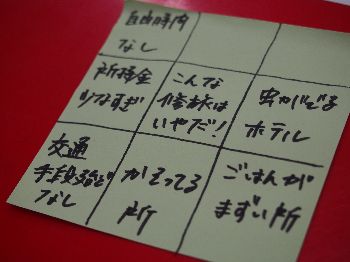 自由時間
なし
所持金
少なすぎ
こんな
修旅は
いやだ!
虫がでる
ホテル
交通
手段ほとんど
なし
かえってる
所
ごはんが
まずい所